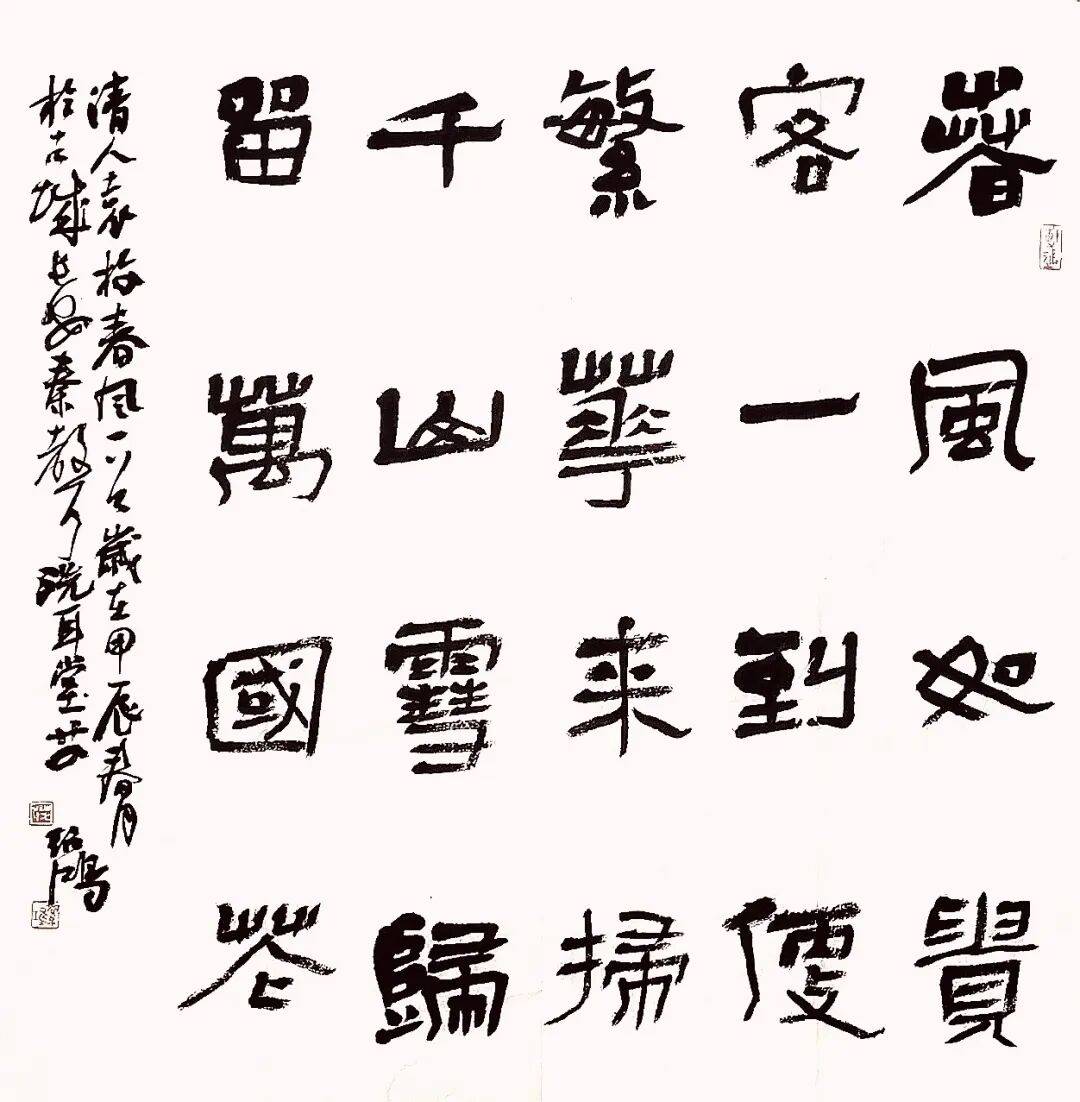 春風如貴
客一到便
繁華来掃
千山雪歸
留萬國花
清人袁枚春風一首歲在甲辰春月
於古城長安秦洗耳堂
鴻